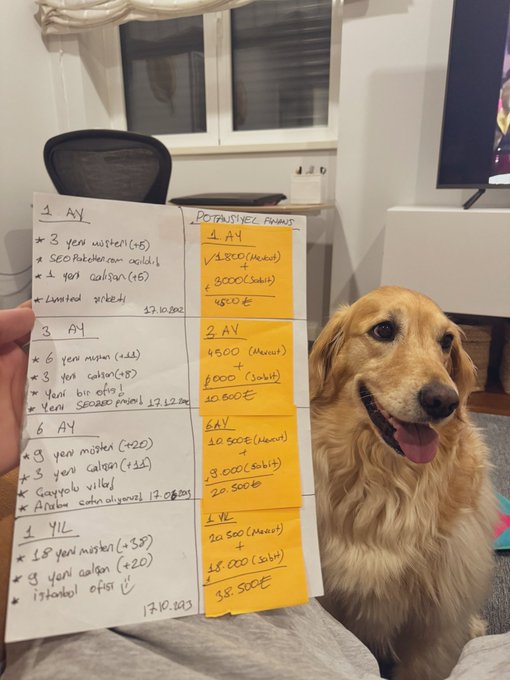 1. AY
* 3 yeni müşteri (+5)
* SEOPaketleri.com açıldı
* 1 yeni çalışan (+5)
* Limited şirketi
POTANSİYEL FİNANS
1. AY
1.800 (Mevcut)
+
3000 (Sabit)
3 AY
* 6 yeni müşteri (+11)
* 3 yeni çalışan (+8)
* Yeni bir ofis!
* Yeni SEOZEO projesi
4500 (Mevcut)
+
6000 (Sabit)
10.500€
6 AY
* 9 yeni müşteri (+20)
* 3 yeni çalışan (+11)
* Çayyolu villa
* Araba satın alıyoruz
6 AY
10.500€ (Mevcut)
+
9.000 (Sabit)
20.500€
1 YIL
* 18 yeni müşteri (+38)
* 9 yeni çalışan (+20)
* istanbul ofisi
1 YIL
20.500 (Mevcut)
+
18.000 (Sabit)
38.500€